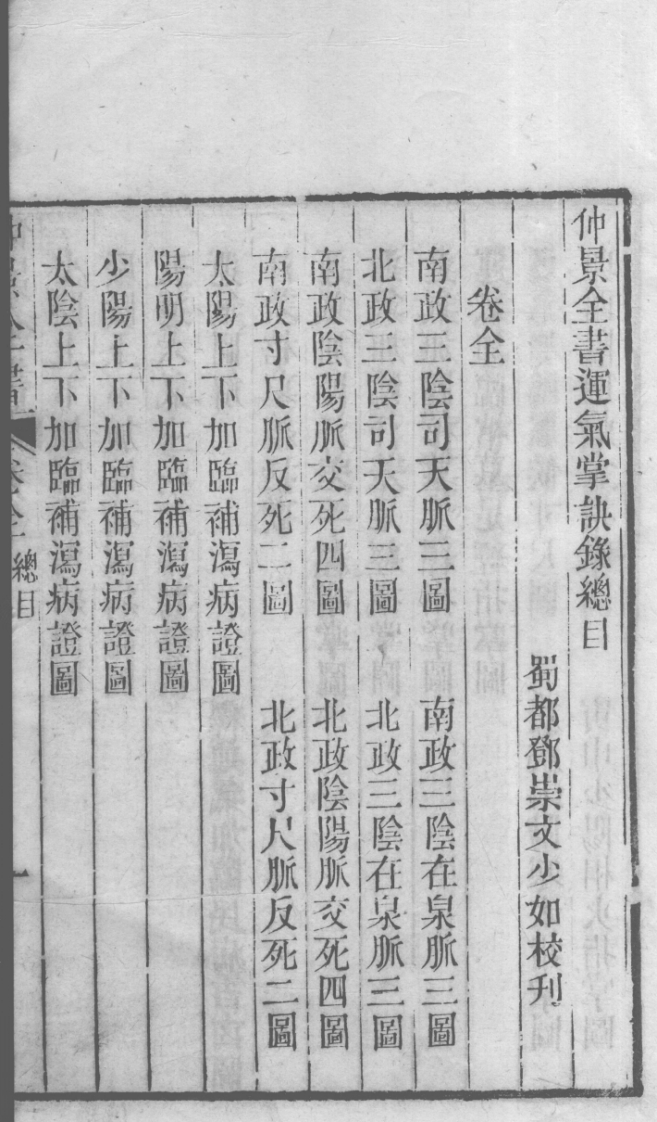 仲景全書運氣掌訣錄總目
蜀都鄧崇文少如校刊
卷全
南政三陰司天脈三圖　南政三陰在泉脈三圖
北政三陰司天脈三圖　北政三陰在泉脈三圖
南政陰陽脈交死四圖　北政陰陽脈交死四圖
南政寸尺脈反死二圖　北政寸尺脈反死二圖
太陽上下加臨補瀉病證圖
陽明上下加臨補瀉病證圖
少陽上下加臨補瀉病證圖
太陰上下加臨補瀉病證圖
卷全 總目 一